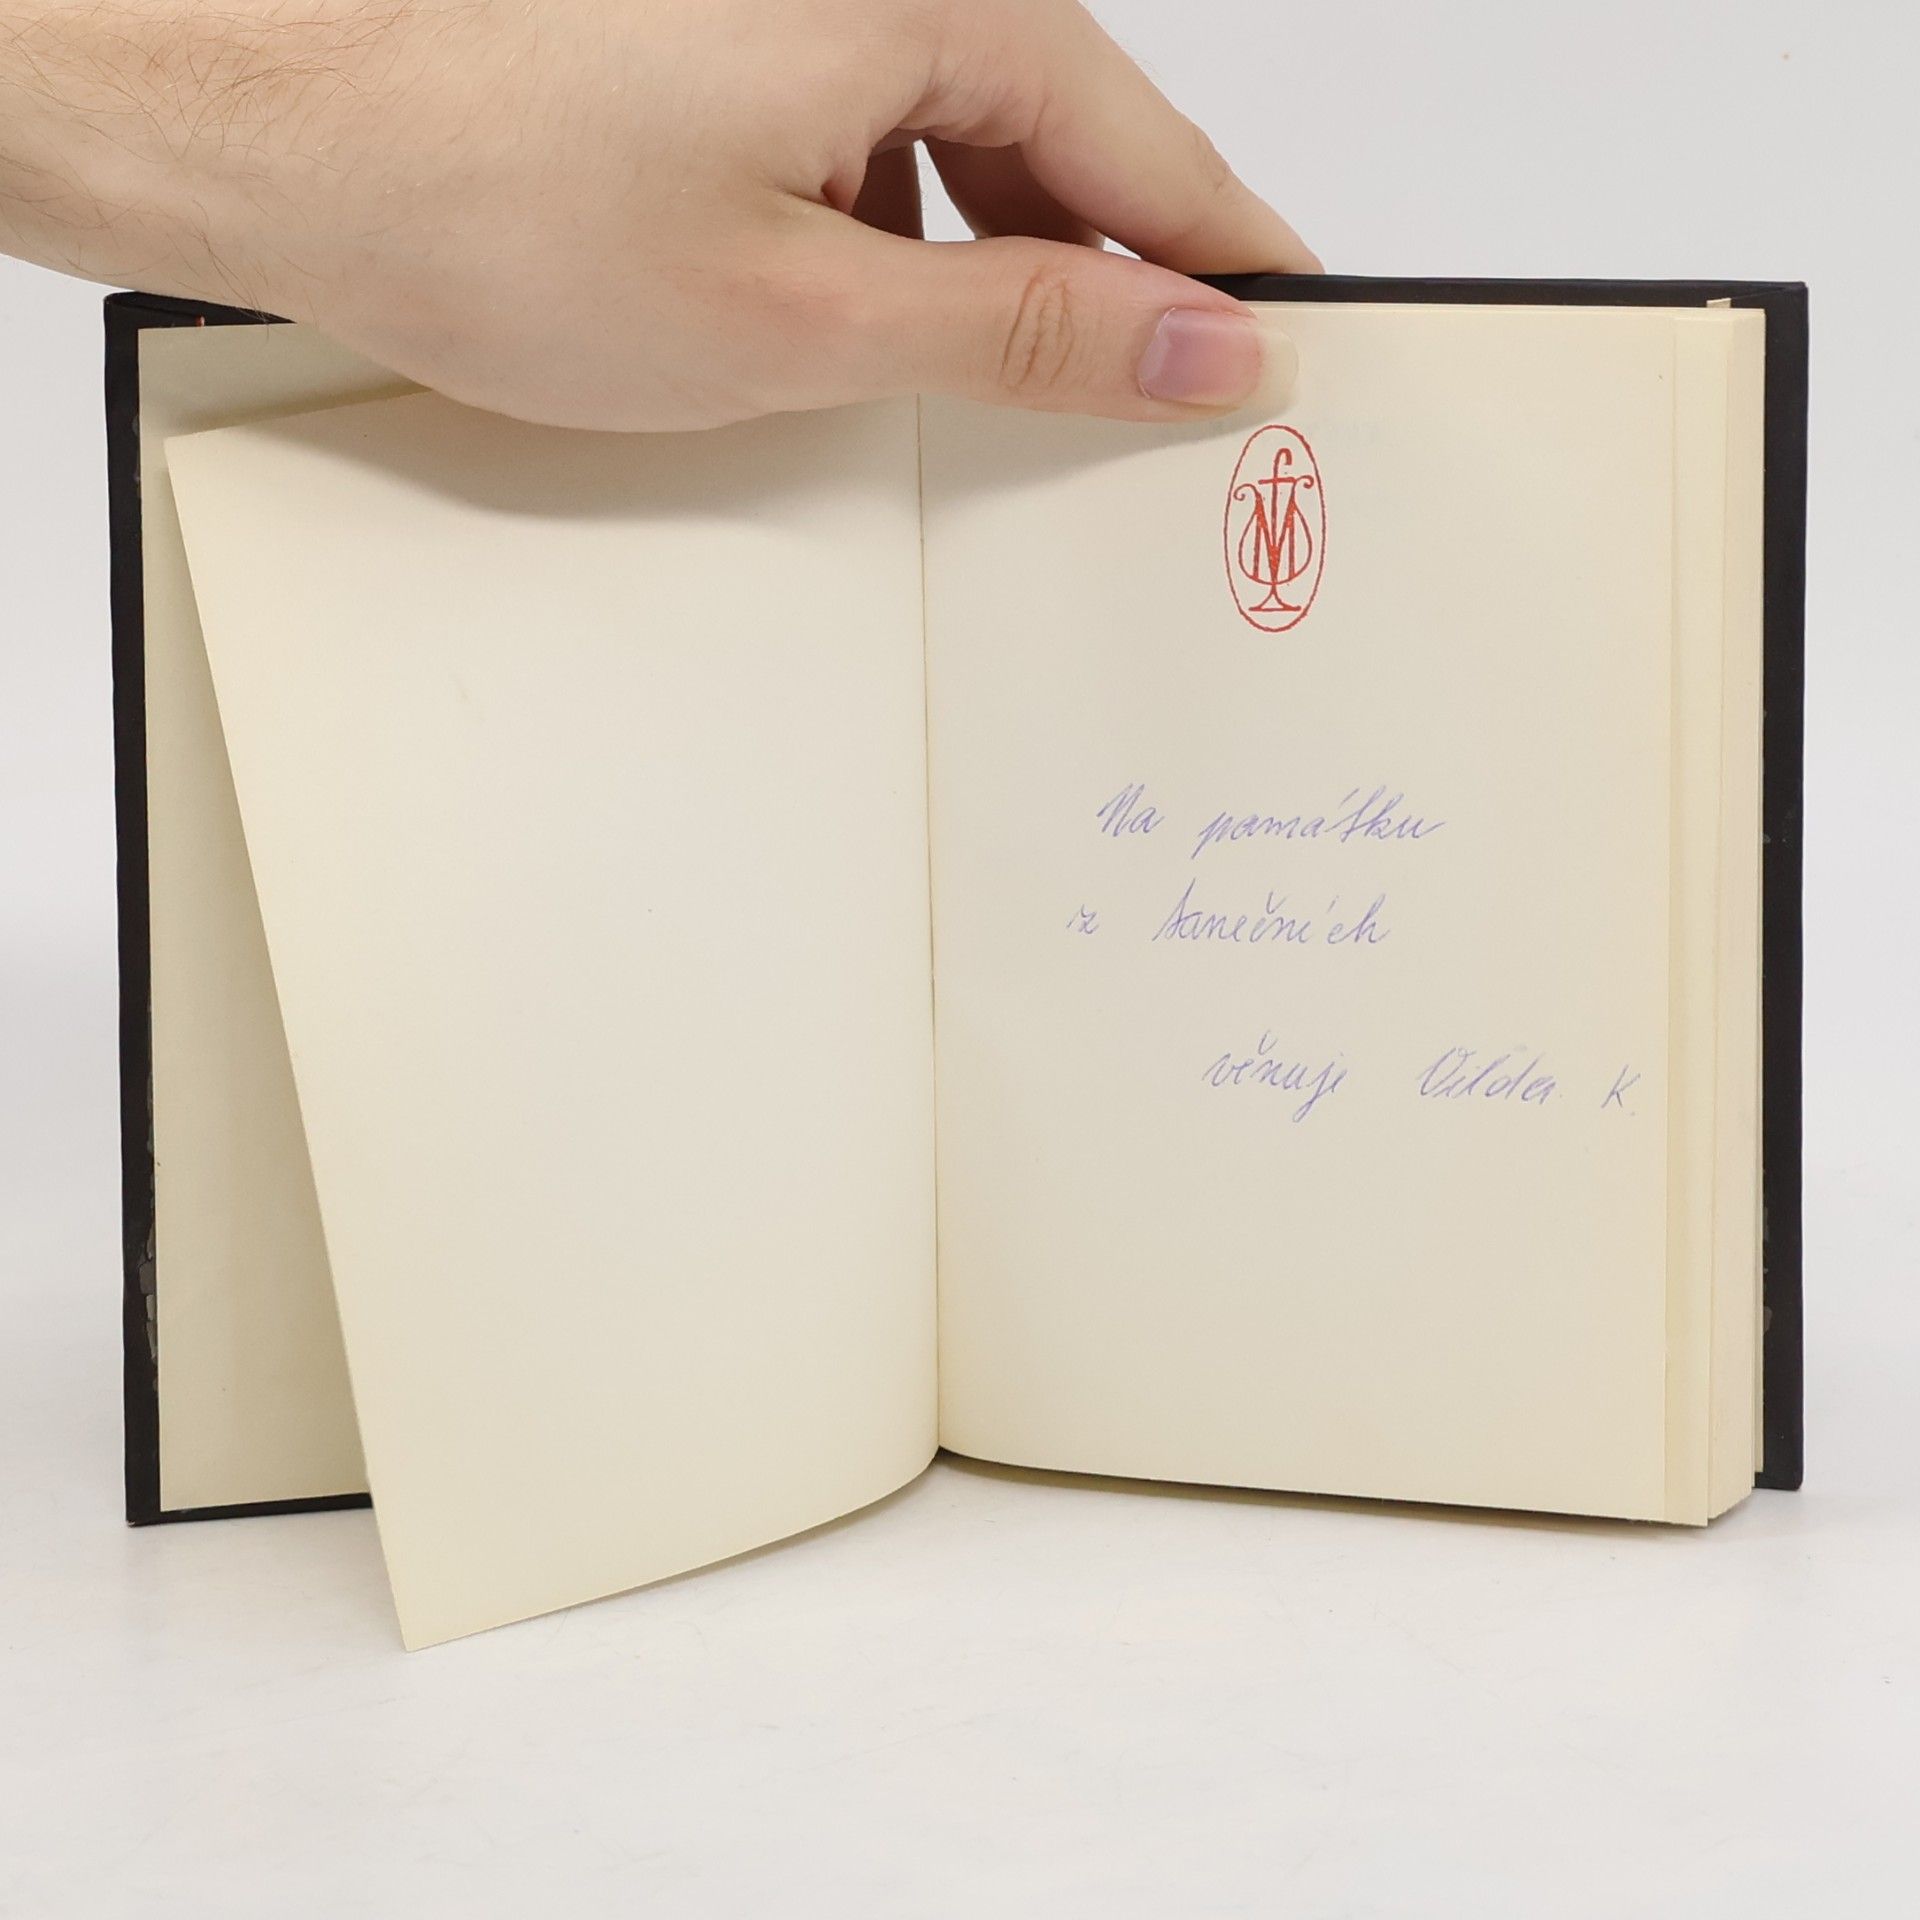 Na památku
z tanečních
věnuje Vilda K.